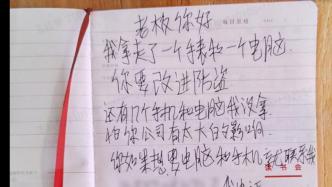 每日思绪
老板你好
我拿走了一个手表和一个电脑
你要改进防盗
还有几个手机和电脑我没拿
怕你公司有太大影响
你如果想要电脑和手机就联系我